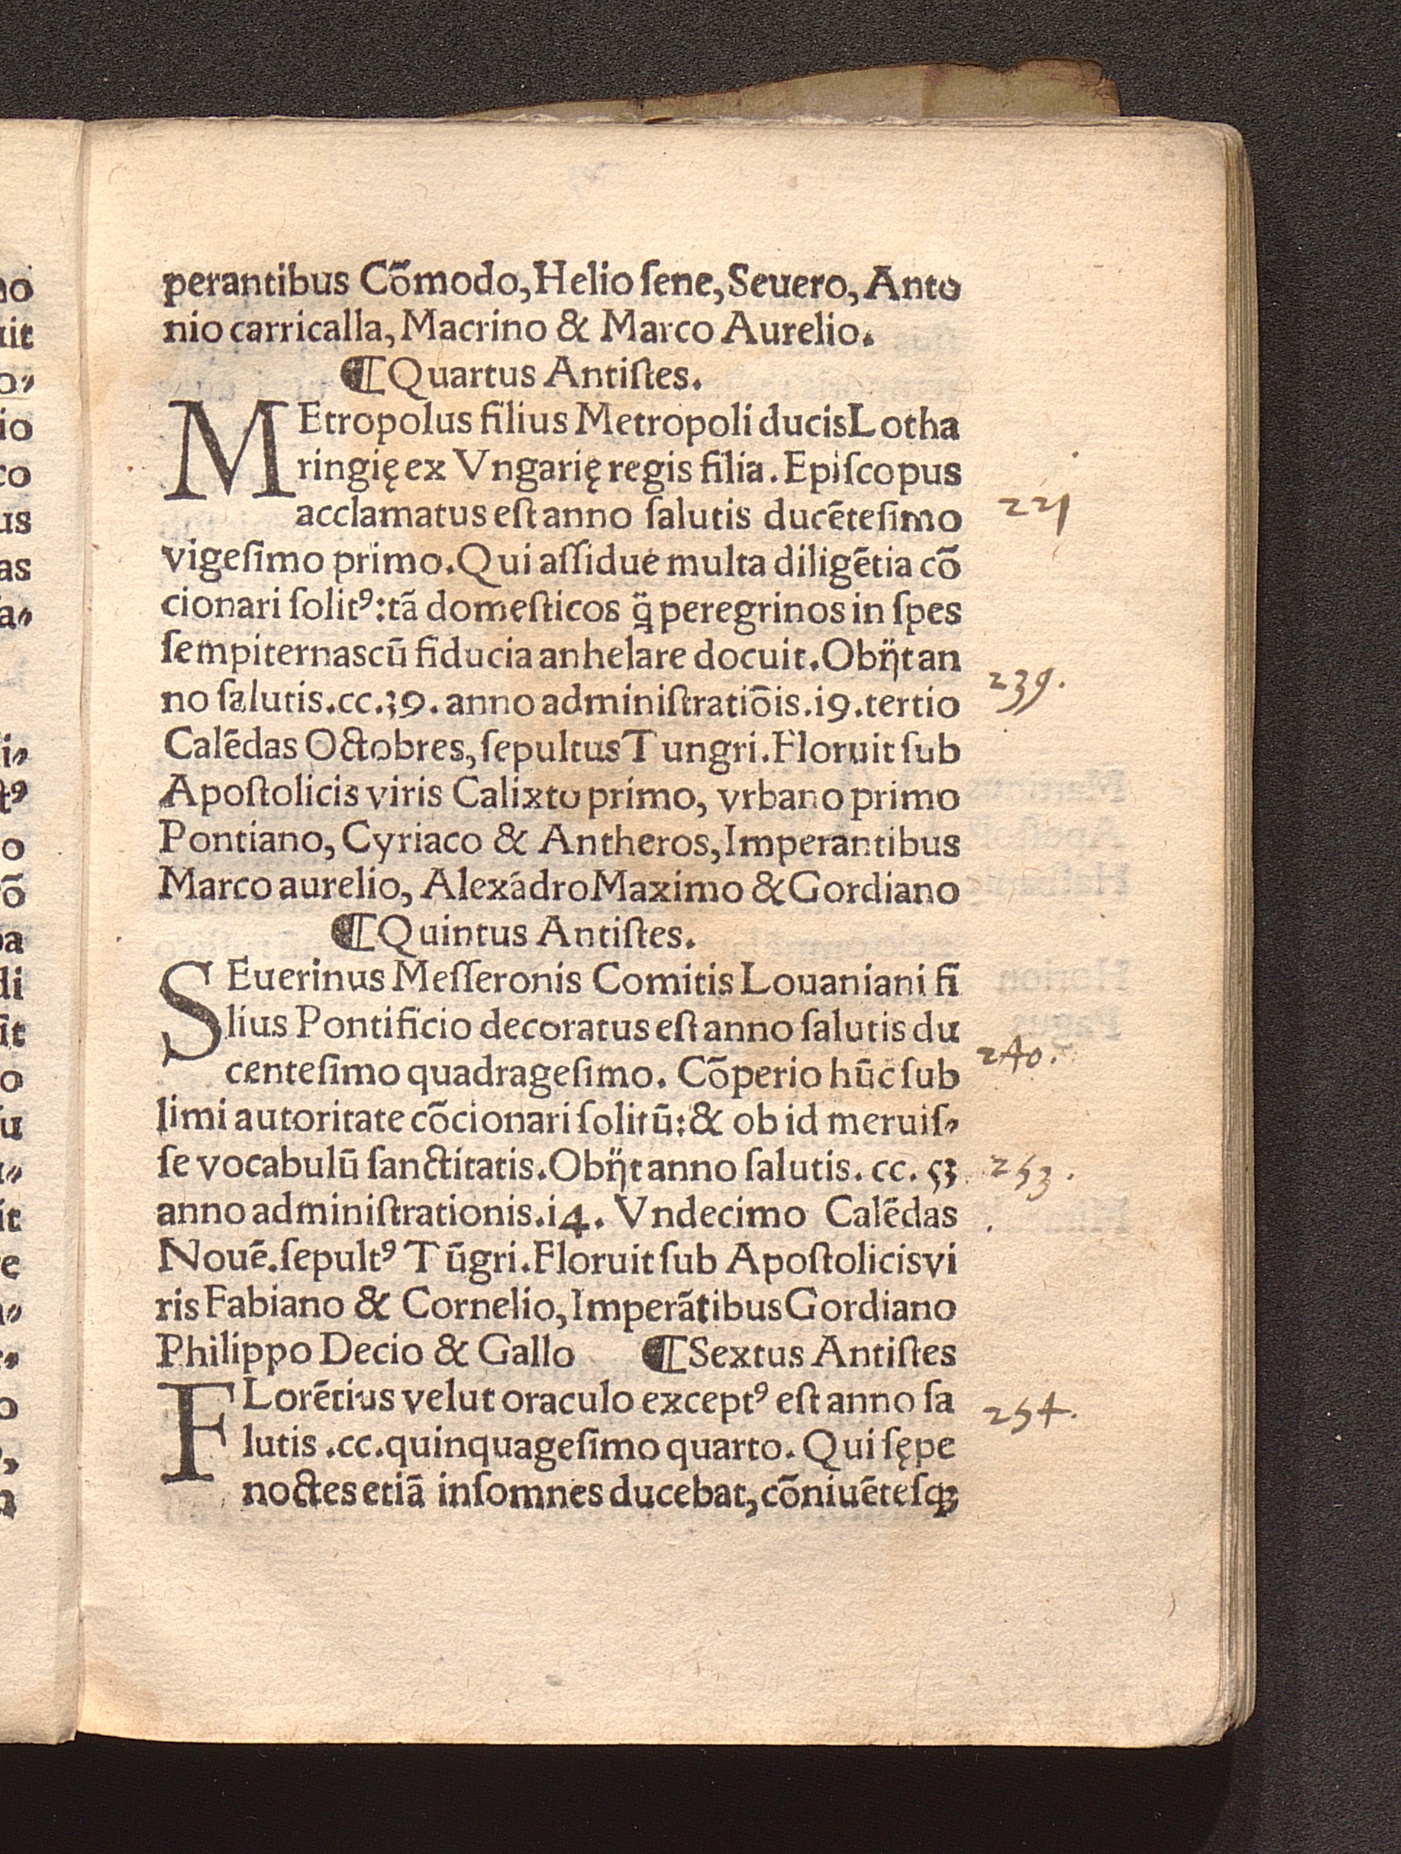 perantibus Cõmodo, Helio ſene, Seuero, Anto
nio carricalla, Macrino & Marco Aurelio.
¶Quartus Antiſtes.
MEtropolus filius Metropoli ducis Lotha
ringię ex Vngarię regis filia. Epiſcopus
acclamatus eſt anno ſalutis ducẽteſimo
221
vigeſimo primo. Qui aſſidue multa diligẽtia cõ
cionari ſolitꝰ: tã domeſticos q̃ꝫ peregrinos in ſpes
ſempiternas cũ fiducia anhelare docuit. Obijt an
no ſalutis .cc.39. anno adminiſtratiõis .i9. tertio
239.
Calẽdas Octobres, ſepultus Tungri. Floruit ſub
Apoſtolicis viris Calixto primo, vrbano primo
Pontiano, Cyriaco & Antheros, Imperantibus
Marco aurelio, Alexãdro Maximo & Gordiano
¶Quintus Antiſtes.
SEuerinus Meſſeronis Comitis Louaniani fi
lius Pontificio decoratus eſt anno ſalutis du
centeſimo quadrageſimo. Cõperio hũc ſub
240.
limi autoritate cõcionari ſolitũ: & ob id meruiſ⸗
ſe vocabulũ ſanctitatis. Obijt anno ſalutis. cc. 53
253.
anno adminiſtrationis .i4. Vndecimo Calẽdas
Nouẽ. ſepultꝰ Tũgri. Floruit ſub Apoſtolicis vi
ris Fabiano & Cornelio, Imperãtibus Gordiano
Philippo Decio & Gallo ¶Sextus Antiſtes
FLorẽtius velut oraculo exceptꝰ eſt anno ſa
254.
lutis .cc. quinquageſimo quarto. Qui ſępe
noctes etiã inſomnes ducebat, cõniuẽteſqꝫ